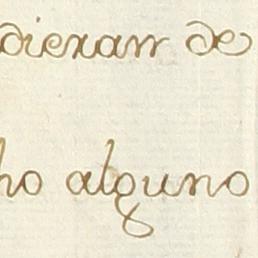 dieran de
ho alguno